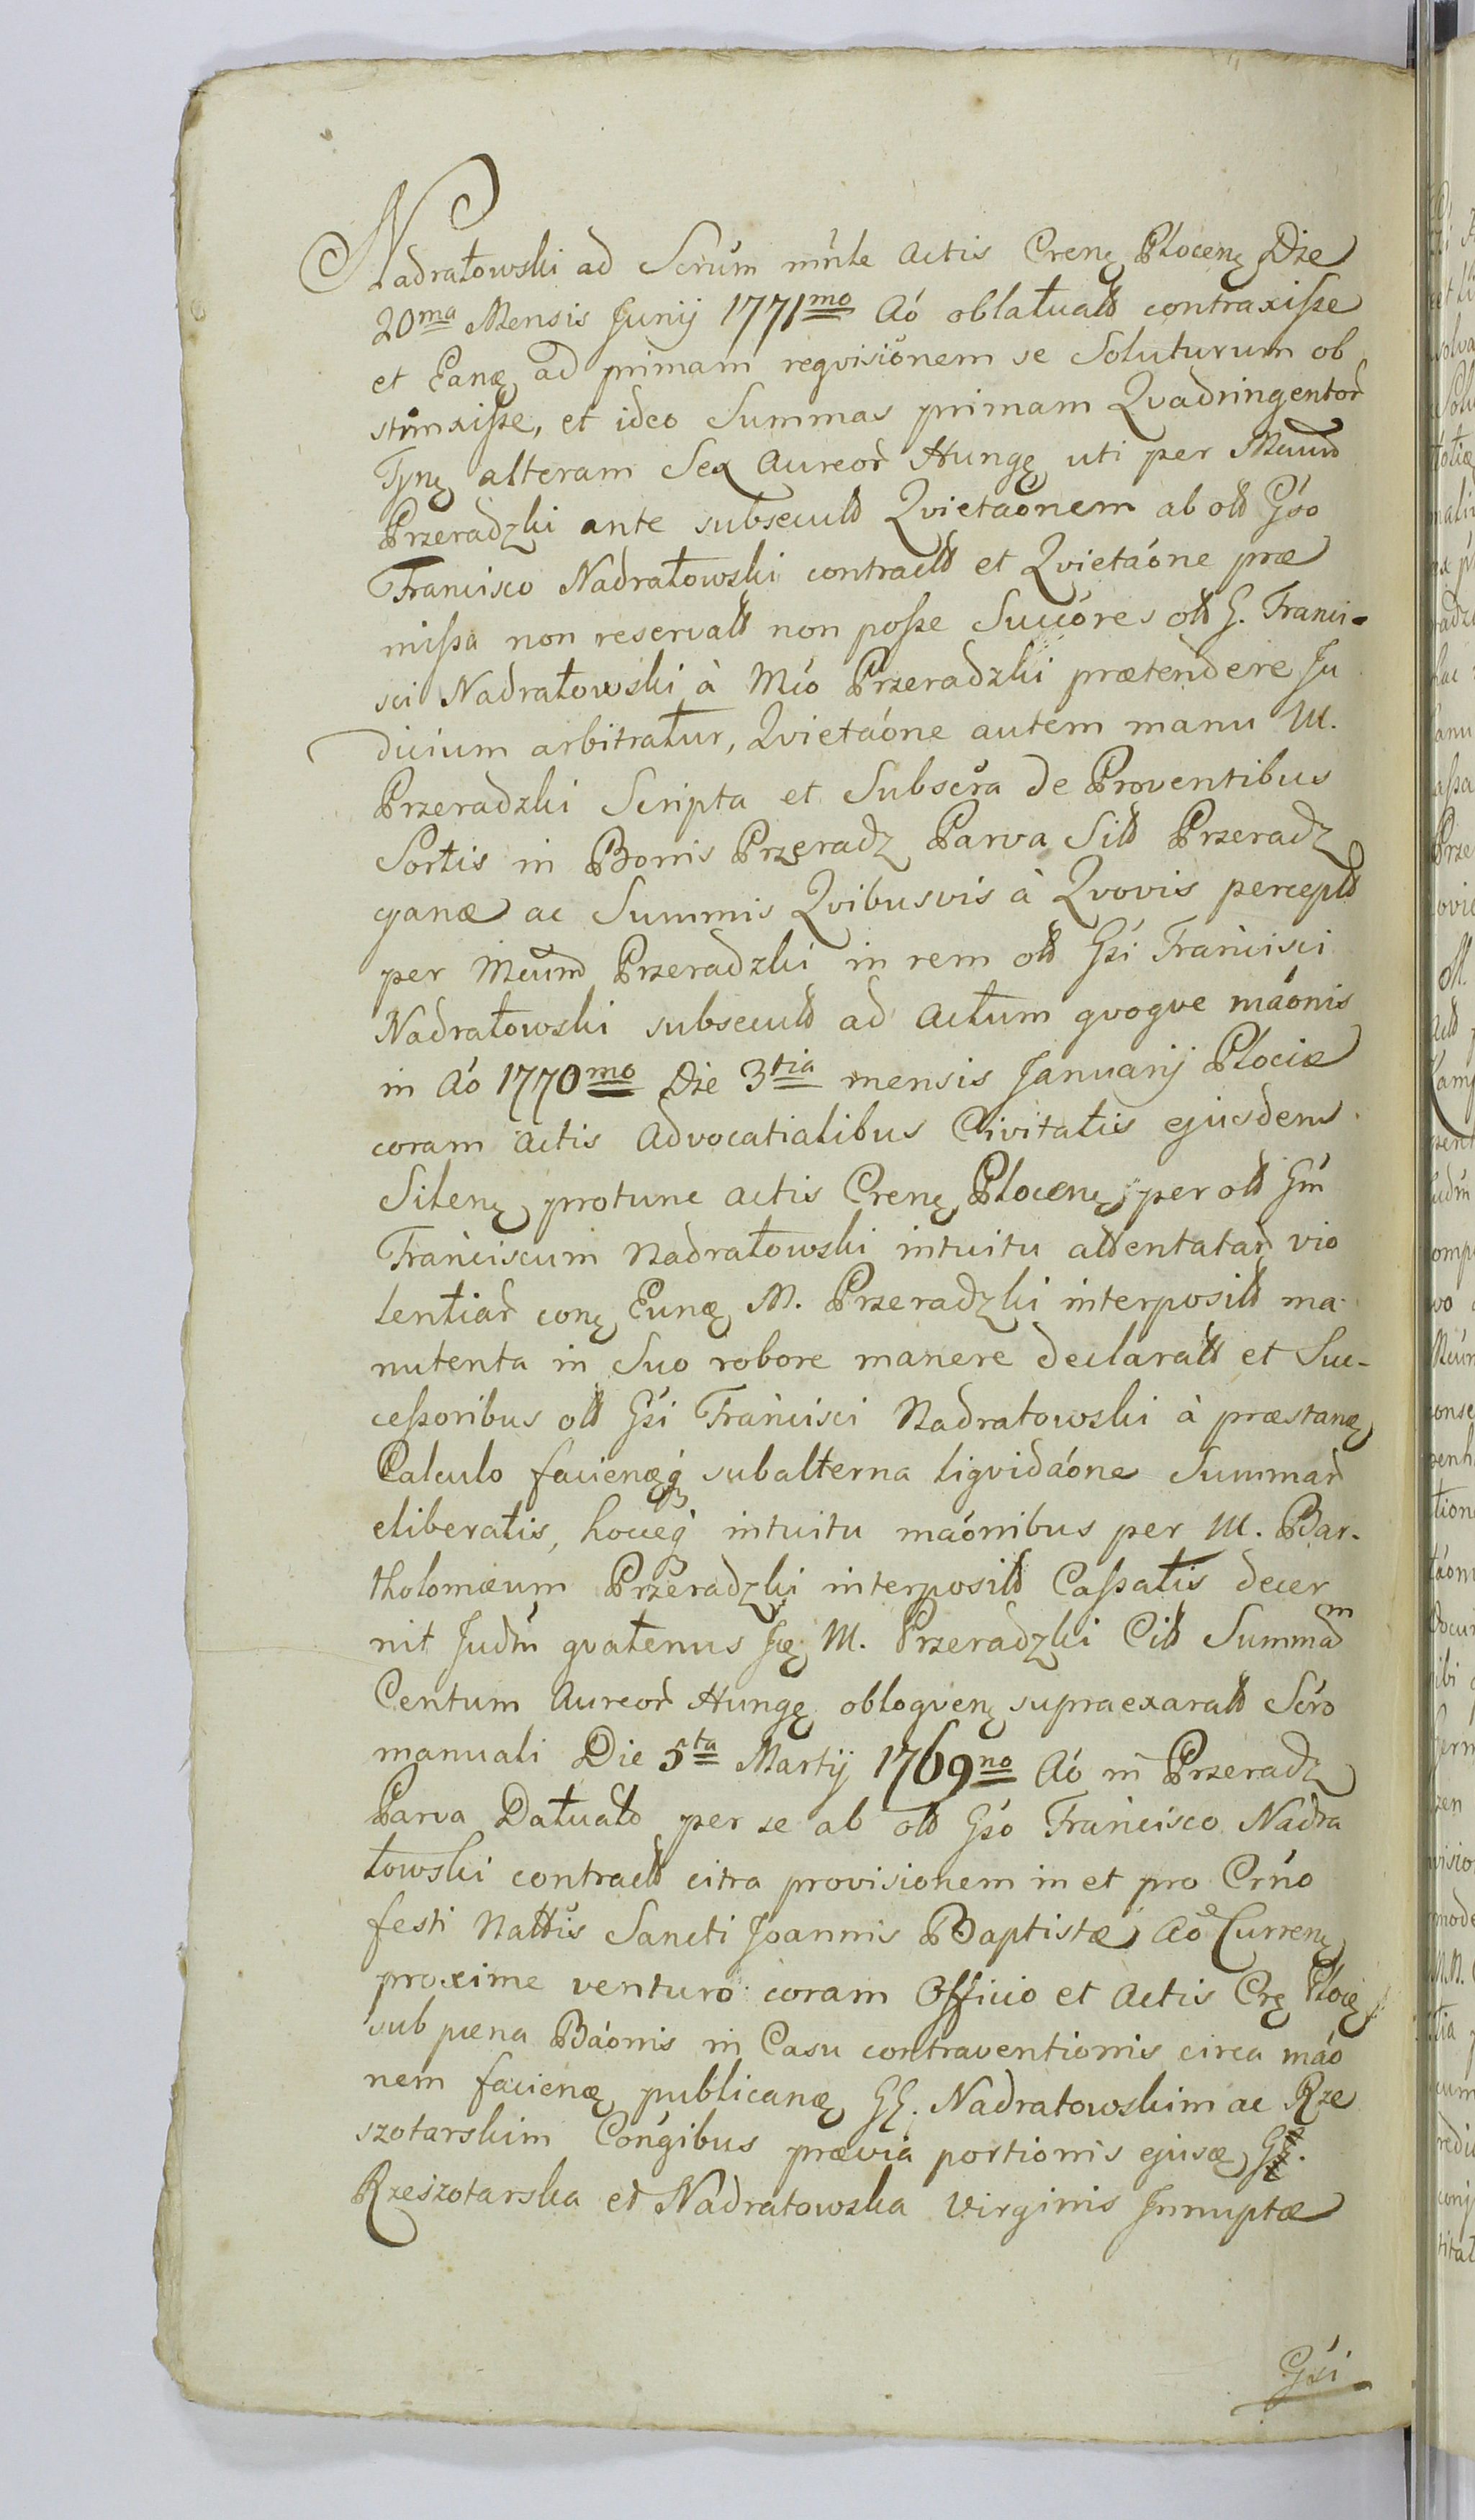 Nadratowski ad Scrum mnle Actis Crenę Plocenę Die
20ma Mensis Junij 1771mo Aó oblatuatt contraxisse
et Eanę ad primam reqvisiónem se Soluturum ob
strinxisse, et ideo Summas primam Qvadringentor
Tynę alteram Sex Aureor Hungę uti per Mcum
Przeradzki ante subsecutt Qvietaónem ab ott Gśo
Francisco Nadratowski contractt et Qvietaóne præ
missa non reservatt non posse Succóres ott G. Franci-
sci Nadratowski à Mco Przeradzki prætendere Ju
dicium arbitratur, Qvietaóne autem manu M.
Przeradzki Scripta et Subscra de Proventibus
Sortis in Bonis Przeradz Parva Sitt Przeradz
cyanæ ac Summis Qvibusvis à Qvovis perceptt
per Mcum Przeradzki in rem ott Gśi Francisci
Nadratowski subsecutt ad Actum qvoqve máonis
in Aó 1770mo Die 3tia mensis Januarij Plociæ
coram Actis Advocatialibus Civitatis ejusdem
Silenę protunc actis Crenę Plocenę per ott Gm
Franciscum Nadratowski intuitu attentatar vio
lentiar conę Eunę M. Przeradzki interpositt ma
nutenta in Suo robore manere declaratt et Suc-
cessoribus ott Gśi Francisci Nadratowski à præstanę
Calculo facienęq subalterna liqvidaóne Summar
eliberatis, hocceq intuitu maónibus per M. Bar-
tholomæum Przeradzki interpositt Cassatis decer
nit Judm qvatenus Ję M. Przeradzki Citt Summam
Centum Aureor Hungę obloqvenę supraexaratt Scro
manuali Die 5ta Martij 1769no Aó in Przeradz
Parva Datuatt per se ab ott Gśo Francisco Nadra
towski contractt citra provisionem in et pro Crno
festi Nattis Sancti Joannis Baptistæ Aó Currenę
proxime venturo coram Officio et Actis Crę Plocę
sub pæna Báonis in Casu contraventionis circa máo
nem facienę publicanę GG. Nadratowskim ac Rze
szotarskim Cóngibus prævia portionis ejusę
Rzeszotarska et Nadratowska Virginis Innuptæ
Gśi